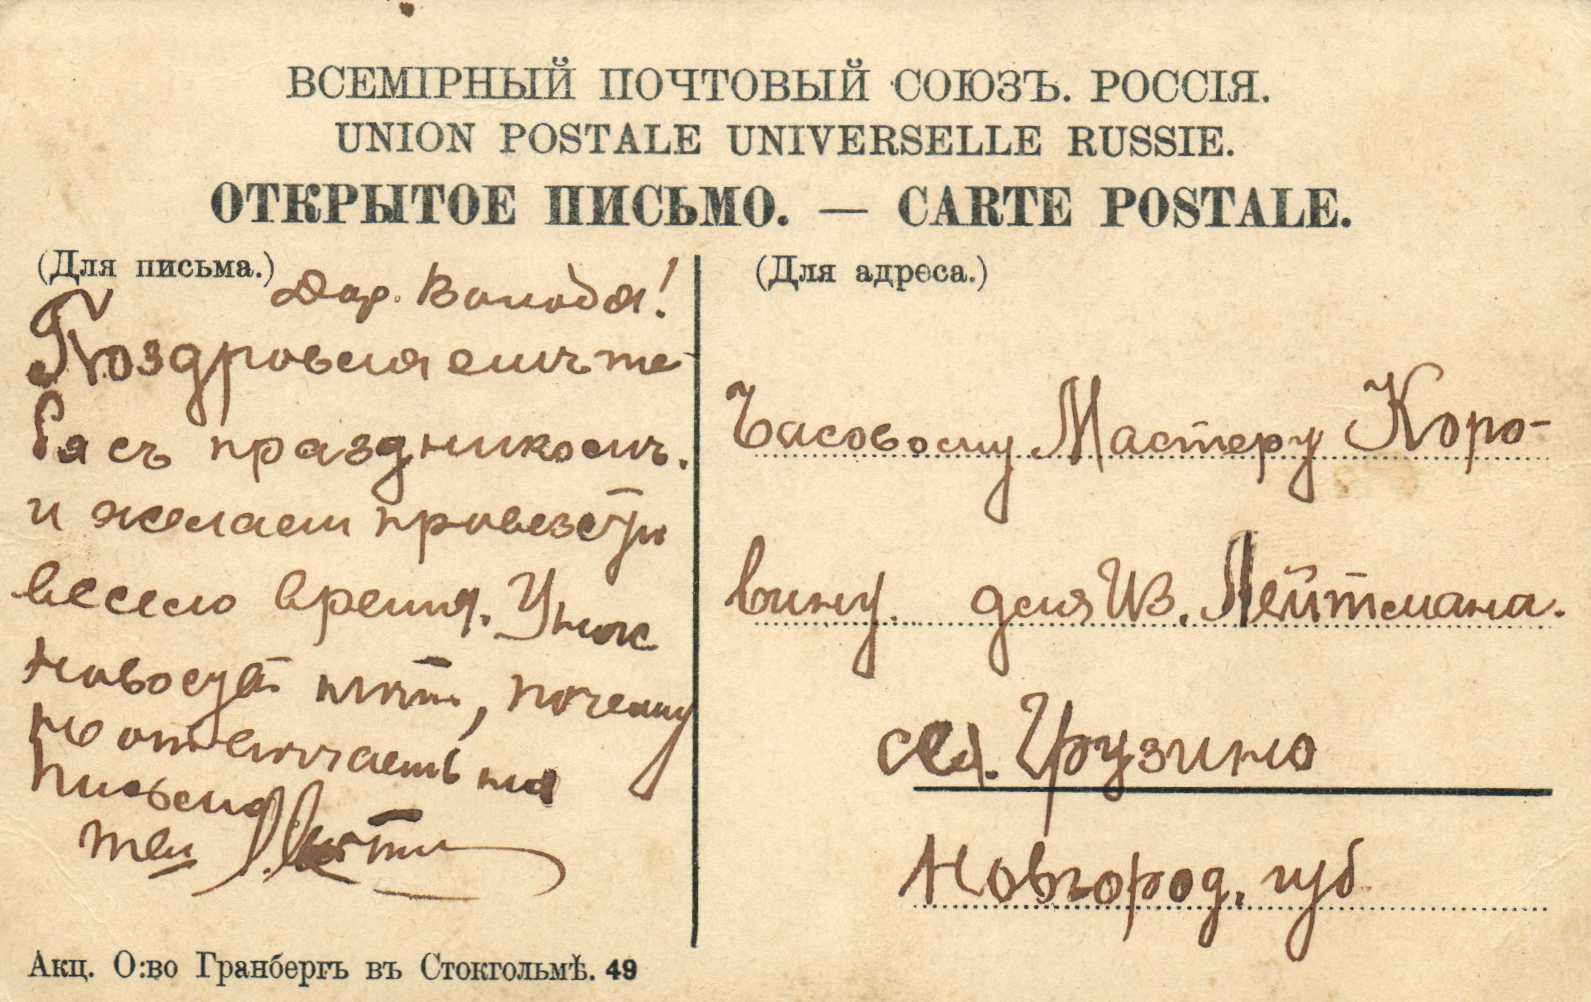 ВСЕМІРНЫЙ ПОЧТОВЫЙ СОЮЗЪ. РОССІЯ.
UNION POSTALE UNIVERSELLE RUSSIE.
ОТКРЫТОЕ ПИСЬМО. — CARTE POSTALE.
(Для письма.)
Дор. Володя!
Поздровляемъ те-
бя съ праздникомъ.
и желаем провезсти
весело время. У нас
новосте нѣт, почему
не отвечаешь на
письма
твой
(Для адреса.)
Часовому Мастеру Коро-
вину. для Ив. Лейтмана.
сел. Грузино
Новгород. губ
Акц. О:во Гранбергъ въ Стокгольмѣ. 49